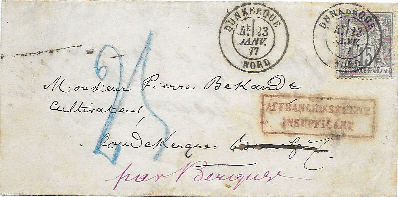 DUNKERQUE
23
JANV.
77
NORD
DUNKERQUE
23
JANV.
77
NORD
15
25
Monsieur Pierre
Cultivateur
AFFRANCHISSEMENT
INSUFFISANT
Coudekerque
par Bergues